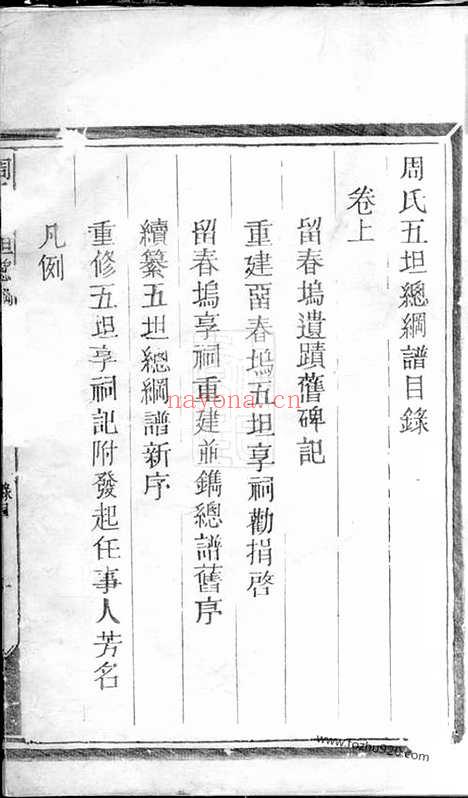 周氏五坦總綱譜目錄
卷上
留春塢遺蹟舊碑記
重建畱春塢五坦享祠勸捐啓
留春塢享祠重建並鐫總譜舊序
續纂五坦總綱譜新序
重修五坦享祠記附發起任事人芳名
凡例
nayona.cn
www.fozhu920.com